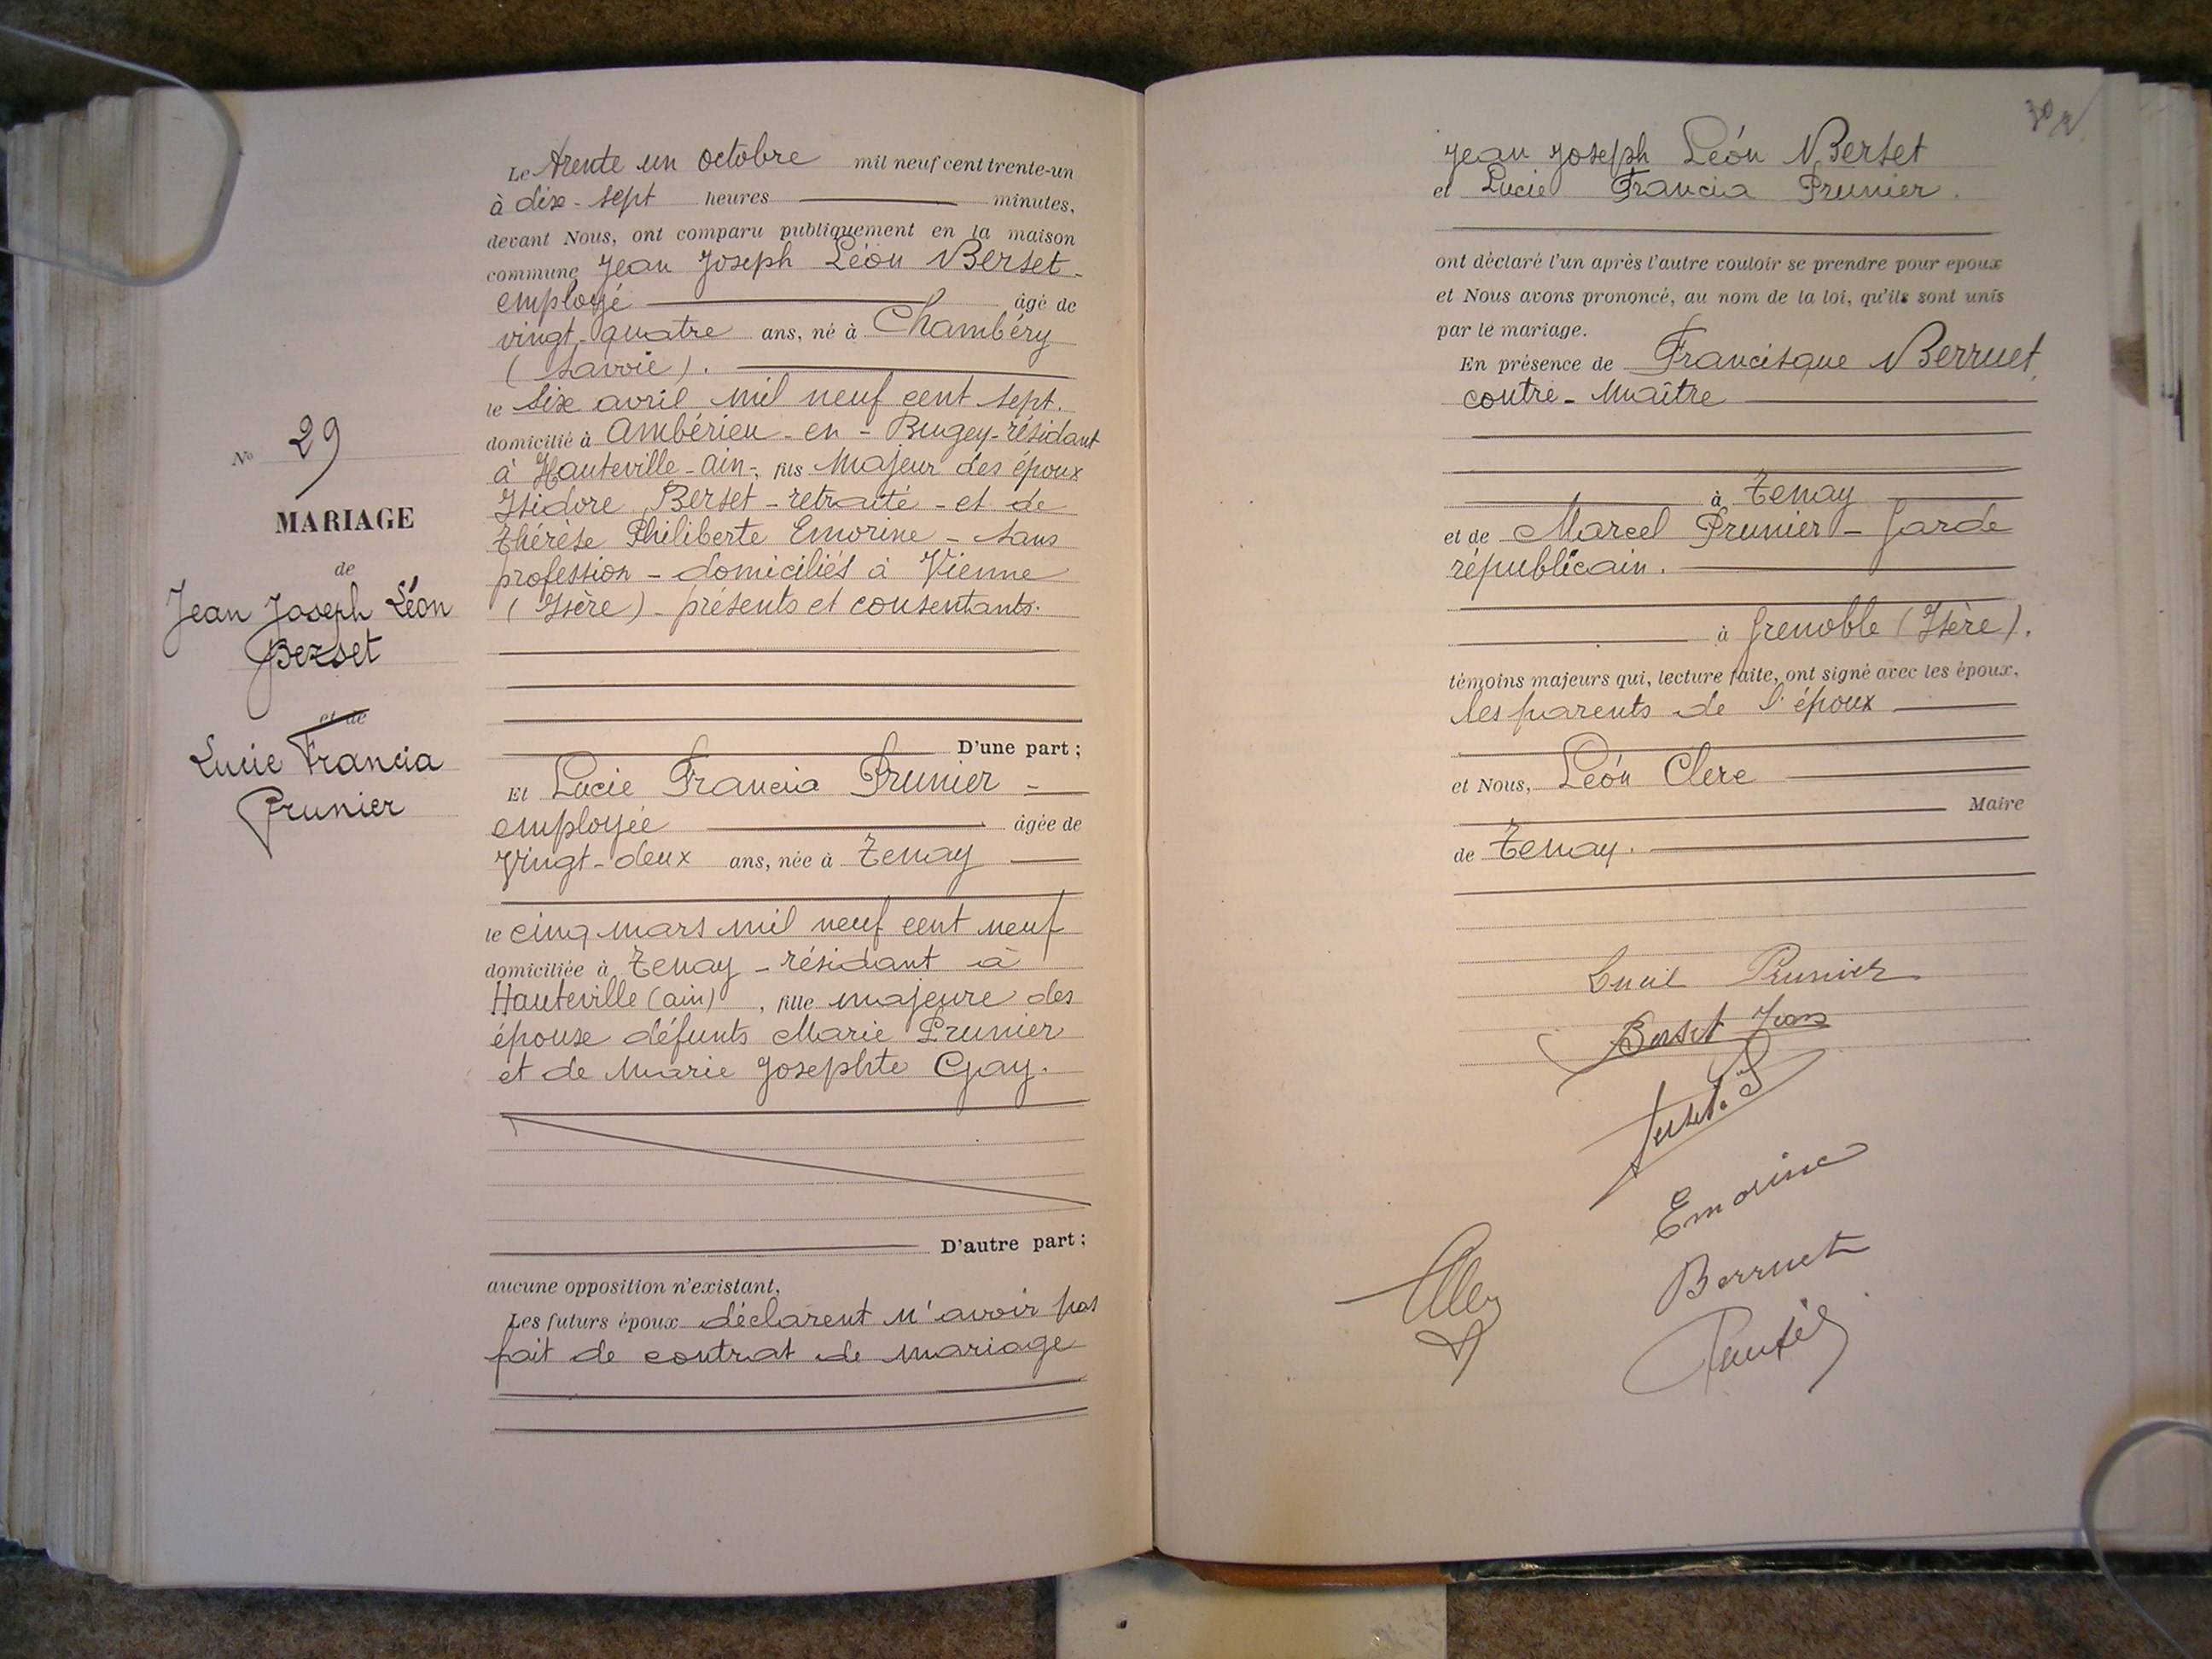 N° 29
MARIAGE
de
Jean Joseph Léon
Berset
et de
Lucie Francia
Prunier
Le trente un octobre mil neuf cent trente-un
à dix-sept heures minutes,
devant Nous, ont comparu publiquement en la maison
commune Jean Joseph Léon Berset-
employé âgé de
vingt-quatre ans, né à Chambéry
(Savoie).
le six avril mil neuf cent sept.
domicilié à Ambérieu-en-Bugey-résidant
à Hauteville-Ain-, fils Majeur des époux
Isidore Berset-retraité-et de
Thérèse Philiberte Emorine-sans
profession-domiciliés à Vienne
(Isère)-présents et consentants.
D'une part;
Et Lucie Francia Prunier-
employée âgée de
Vingt-deux ans, née à Tenay
le cinq mars mil neuf cent neuf
domiciliée à Tenay-résidant à
Hauteville (Ain), fille majeure des
épouse défunts Marie Prunier
et de Marie Josephte Gay.
D'autre part;
aucune opposition n'existant,
Les futurs époux déclarent n'avoir pas
fait de contrat de mariage
Jean Joseph Léon Berset
et Lucie Francia Prunier.
ont déclaré l'un après l'autre vouloir se prendre pour epoux
et Nous avons prononcé, au nom de la loi, qu'ils sont unis
par le mariage.
En présence de Francisque Berruet
contre-Maître
à Tenay
et de Marcel Prunier-Garde
républicain.
à Grenoble (Isère).
témoins majeurs qui, lecture faite, ont signé avec les époux,
les parents de l'époux
et Nous, Léon Clerc
Maire
de Tenay.
Lucie Prunier
Berset Jean
Emorine
Berruet